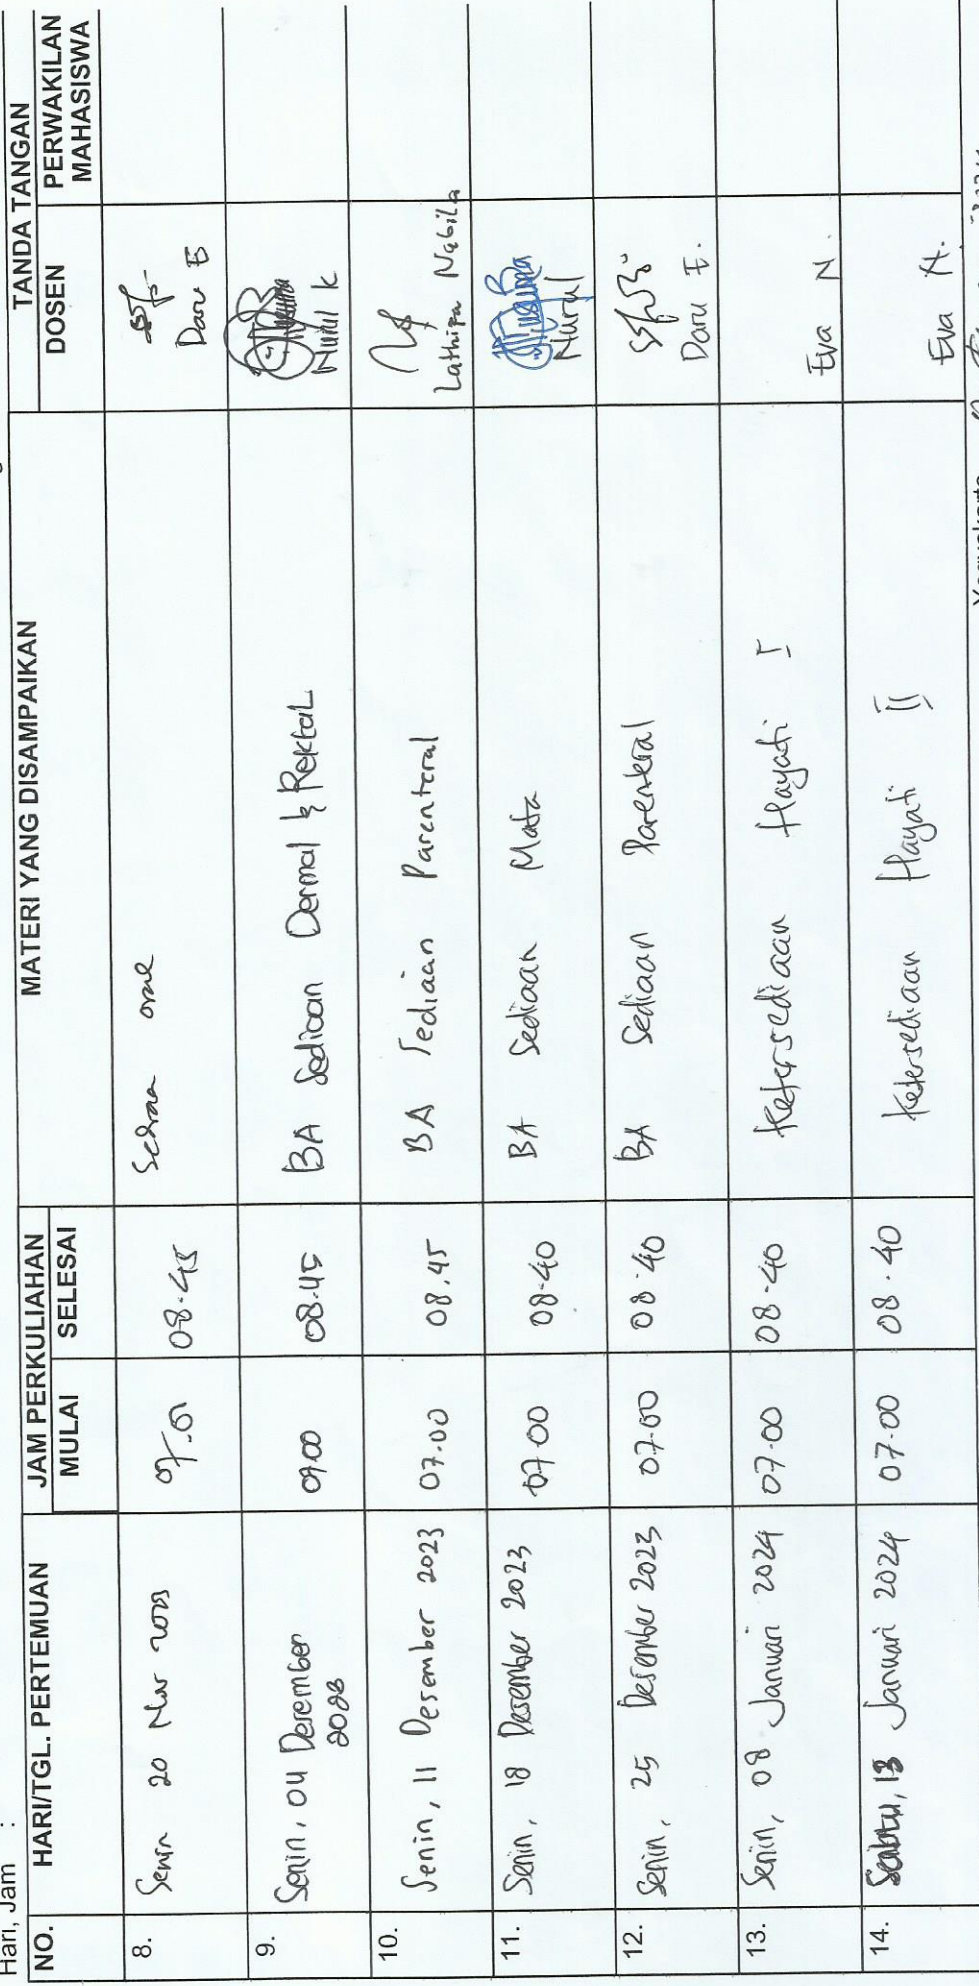 Hari, Jam :
NO. HARI/TGL. PERTEMUAN JAM PERKULIAHAN MATERI YANG DISAMPAIKAN TANDA TANGAN
MULAI SELESAI DOSEN PERWAKILAN MAHASISWA
8. Senin 20 Nov 2023 08-45 oral Daru E
9. Senin, 04 Desember 08.45 BA Sediaan Dermal & Rektal Nurul K
10. Senin, 11 Desember 2023 07.00 08.45 BA Sediaan Parenteral Lathifa Nabila
11. Senin, 18 Desember 2023 07-00 08-40 BA Sediaan Mata Nurul
12. Senin, 25 Desember 2023 07-00 08-40 BA Sediaan Parenteral Daru E.
13. Senin, 08 Januari 2024 07-00 08-40 Ketersediaan Hayati I Eva N.
14. Sabtu, 13 Januari 2024 07-00 08-40 Ketersediaan Hayati II Eva N.